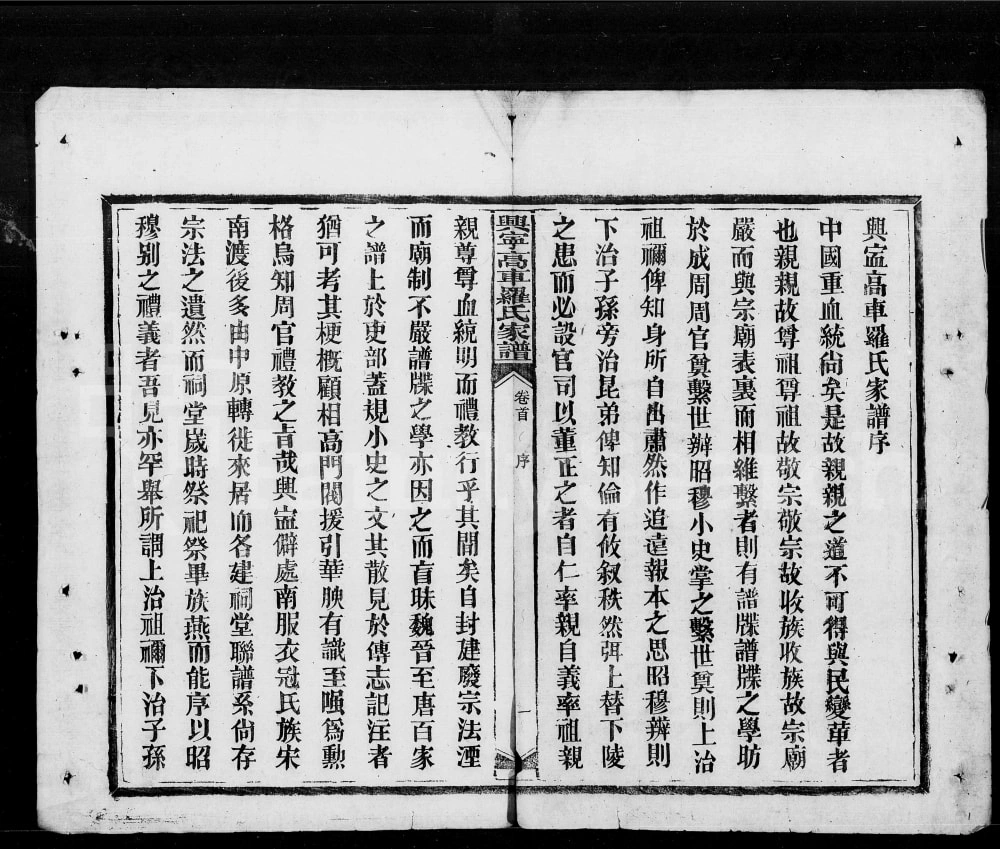 興寍高車羅氏家譜序
中國重血統尙矣是故親親之道不可得與民變革者
也親親故尊祖尊祖故敬宗敬宗故收族收族故宗廟
嚴而與宗廟表裏而相維繫者則有譜牒譜牒之學昉
於成周周官奠繫世辨昭穆小史掌之繫世奠則上治
祖禰俾知身所自出肅然作追遠報本之思昭穆辨則
下治子孫旁治昆弟俾知倫有攸叙秩然弭上替下陵
之患而必設官司以董正之者自仁率親自義率祖親
興寧高車羅氏家譜 卷首 序 一
親尊尊血統明而禮教行乎其間矣自封建廢宗法湮
而廟制不嚴譜牒之學亦因之而盲昧魏晉至唐百家
之譜上於吏部蓋規小史之文其散見於傳志記注者
猶可考其梗概顧相高門閥援引華腴有識至嗤爲勳
格烏知周官禮教之旨哉興寍僻處南服衣冠氏族宋
南渡後多由中原轉徙來居而各建祠堂聯譜系尙存
宗法之遺然而祠堂歲時祭祀祭畢族燕而能序以昭
穆别之禮義者吾見亦罕舉所謂上治祖禰下治子孫